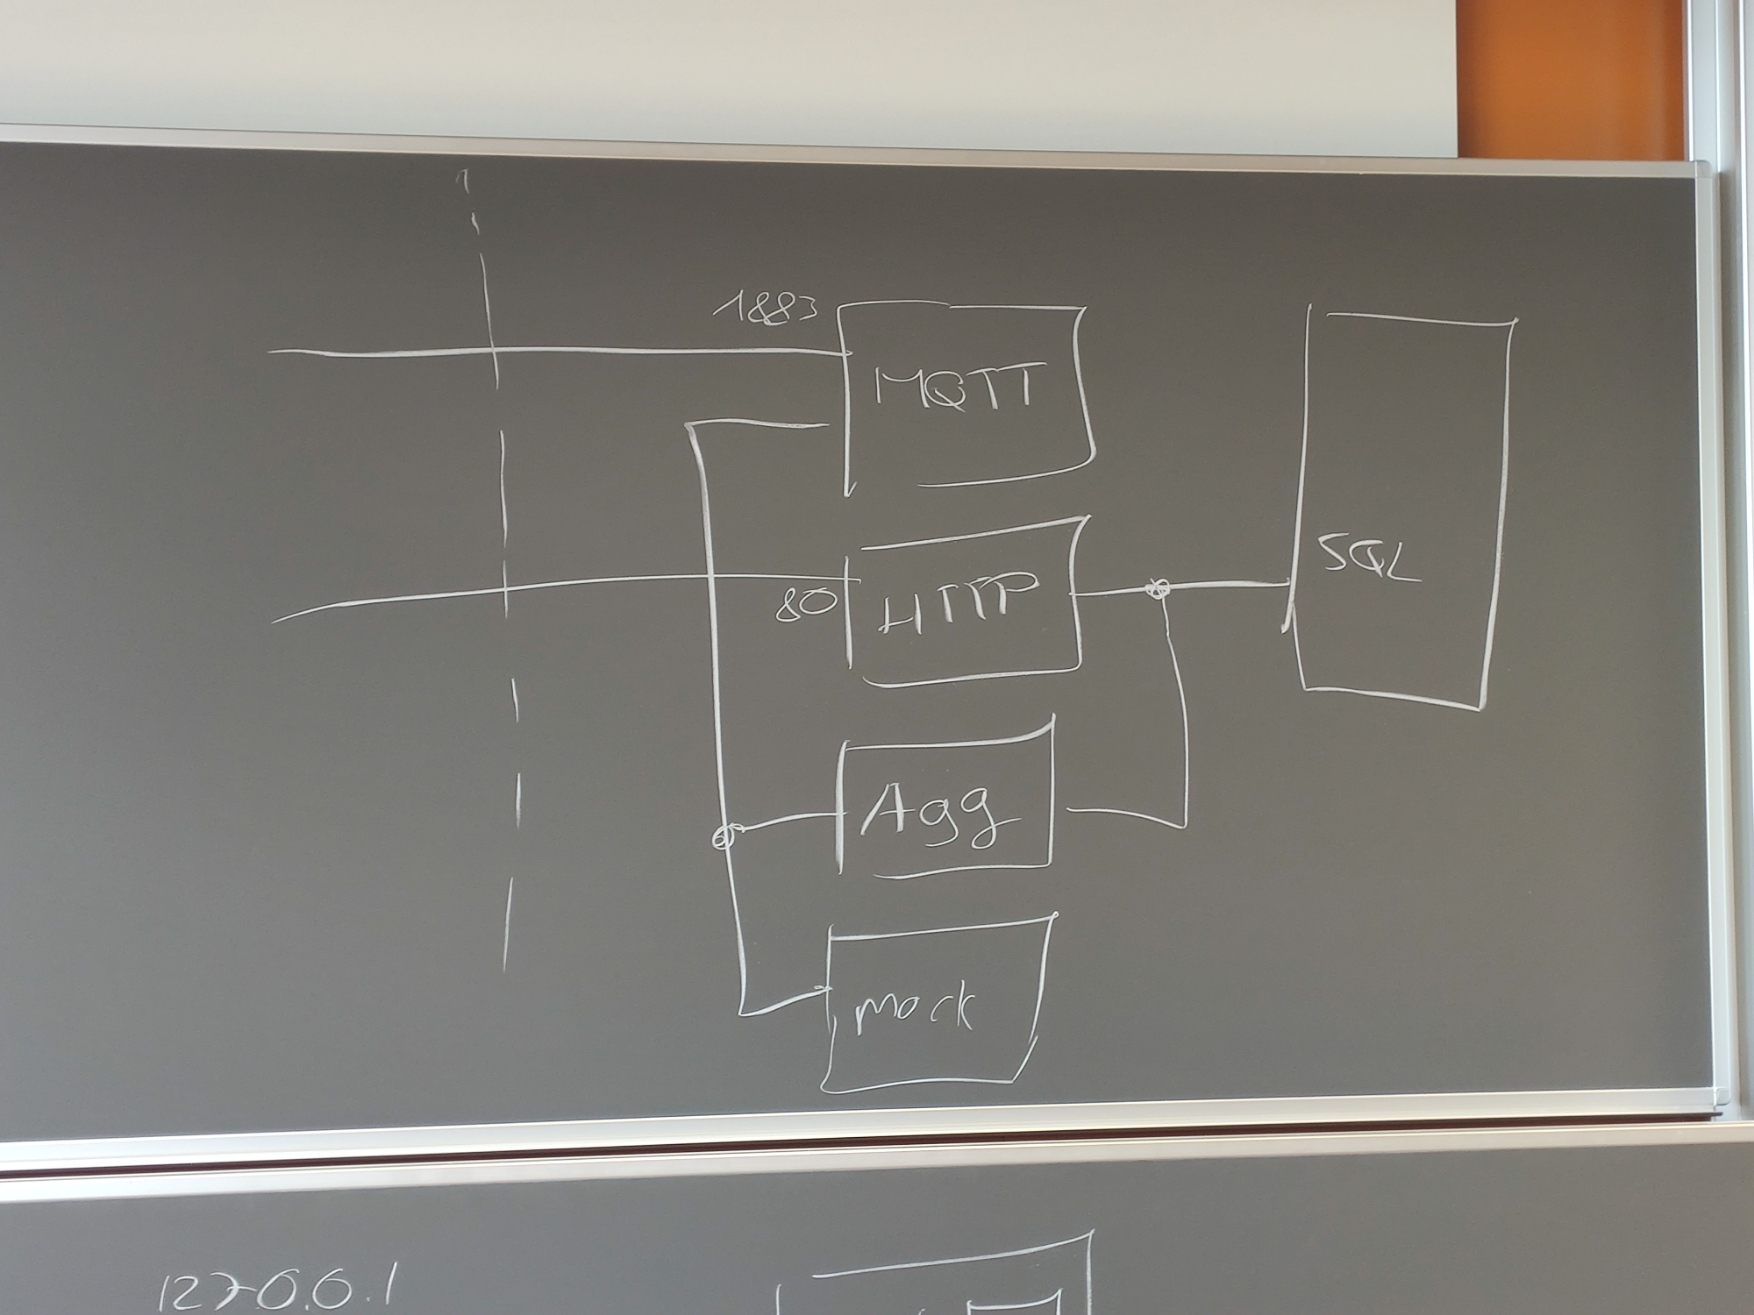 1883
MQTT
80
HTTP
SQL
Agg
mock
127.0.0.1